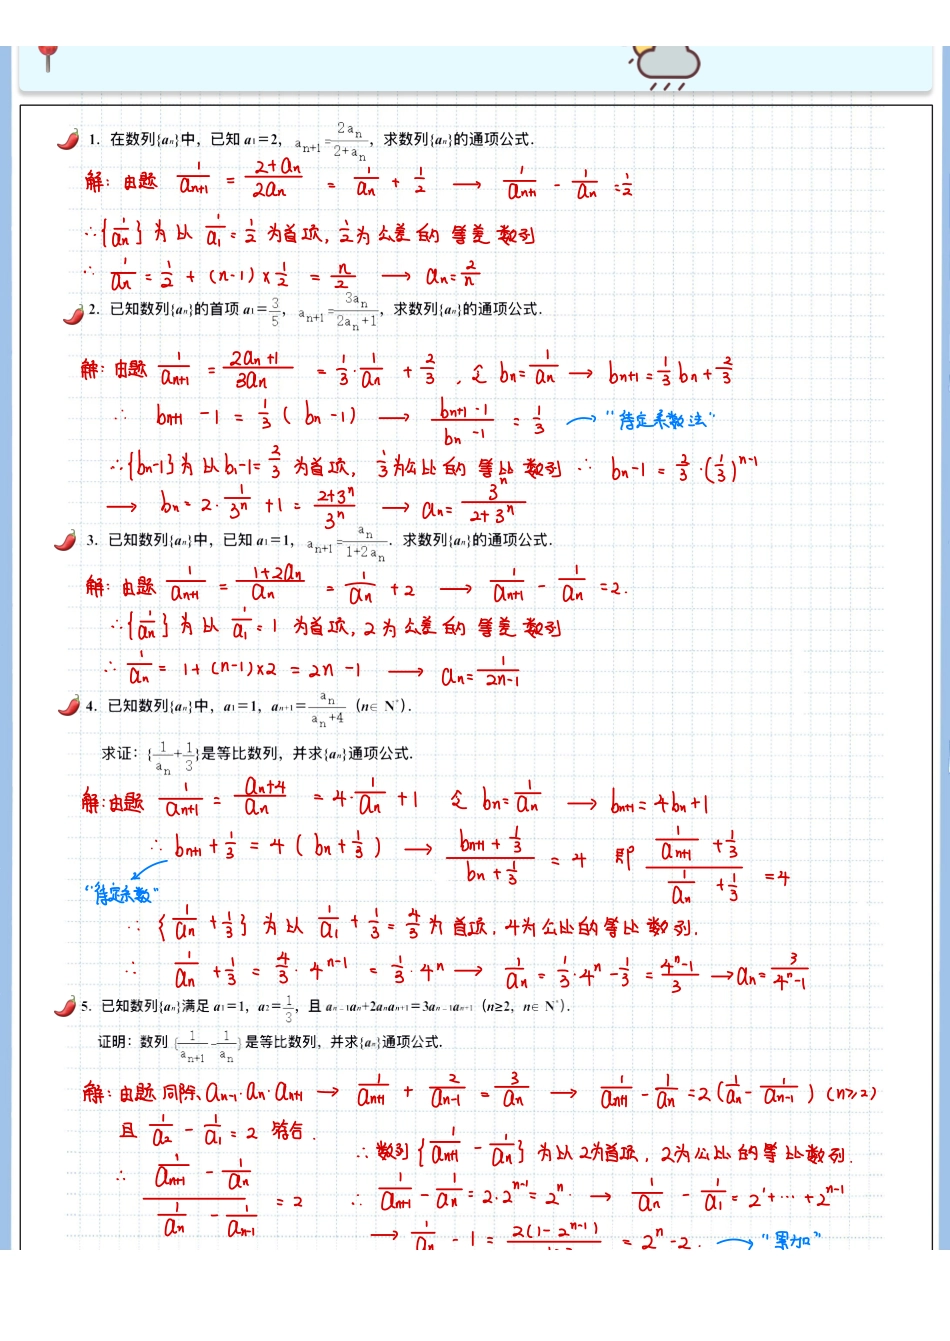 1. 在数列{aₙ}中，已知 a₁＝2，aₙ₊₁=2aₙ/(2+aₙ)，求数列{aₙ}的通项公式．
解：由题 1/aₙ₊₁ = (2+aₙ)/2aₙ = 1/aₙ + 1/2 → 1/aₙ₊₁ - 1/aₙ = 1/2
∴{1/aₙ}为以 1/a₁ = 1/2 为首项，1/2为公差的 等差 数列
∴ 1/aₙ = 1/2 + (n-1)×1/2 = n/2 → aₙ = 2/n
2. 已知数列{aₙ}的首项 a₁＝3/5，aₙ₊₁=3aₙ/(2aₙ+1)，求数列{aₙ}的通项公式．
解：由题 1/aₙ₊₁ = (2aₙ+1)/3aₙ = 1/3·1/aₙ + 2/3，令 bₙ = 1/aₙ → bₙ₊₁ = 1/3 bₙ + 2/3
∴ bₙ₊₁ - 1 = 1/3 ( bₙ - 1) → (bₙ₊₁ - 1)/(bₙ - 1) = 1/3 → “待定系数法”
∴{bₙ-1}为以b₁-1 = 2/3 为首项，1/3为公比的 等比 数列 ∴ bₙ-1 = 2/3·(1/3)ⁿ⁻¹
→ bₙ = 2·1/3ⁿ + 1 = (2+3ⁿ)/3ⁿ → aₙ = 3ⁿ/(2+3ⁿ)
3. 已知数列{aₙ}中，已知 a₁＝1，aₙ₊₁=aₙ/(1+2aₙ)．求数列{aₙ}的通项公式．
解：由题 1/aₙ₊₁ = (1+2aₙ)/aₙ = 1/aₙ + 2 → 1/aₙ₊₁ - 1/aₙ = 2.
∴{1/aₙ}为以 1/a₁ = 1 为首项，2为公差的 等差 数列
∴ 1/aₙ = 1+(n-1)×2 = 2n-1 → aₙ = 1/(2n-1)
4. 已知数列{aₙ}中，a₁＝1，aₙ₊₁＝aₙ/(aₙ+4)（n∈ N*）．
求证：{1/aₙ+1/3}是等比数列，并求{aₙ}通项公式．
解：由题 1/aₙ₊₁ = (aₙ+4)/aₙ = 4·1/aₙ + 1 令 bₙ = 1/aₙ → bₙ₊₁ = 4bₙ+1
∴ bₙ₊₁ + 1/3 = 4 ( bₙ + 1/3 ) → (bₙ₊₁ + 1/3)/(bₙ + 1/3) = 4 即 (1/aₙ₊₁ + 1/3)/(1/aₙ + 1/3) = 4
“待定系数”
∴ {1/aₙ + 1/3} 为以 1/a₁ + 1/3 = 4/3 为首项，4为公比的等比 数列.
∴ 1/aₙ + 1/3 = 4/3·4ⁿ⁻¹ = 1/3·4ⁿ → 1/aₙ = 1/3·4ⁿ - 1/3 = (4ⁿ-1)/3 → aₙ = 3/(4ⁿ-1)
5. 已知数列{aₙ}满足 a₁＝1，a₂＝1/3，且 aₙ₋₁aₙ+2aₙaₙ₊₁＝3aₙ₋₁aₙ₊₁（n≥2，n∈ N*）．
证明：数列 {1/aₙ₊₁-1/aₙ} 是等比数列，并求{aₙ}通项公式．
解：由题 同除、aₙ₋₁·aₙ·aₙ₊₁ → 1/aₙ₊₁ + 2/aₙ₋₁ = 3/aₙ → 1/aₙ₊₁ - 1/aₙ = 2(1/aₙ - 1/aₙ₋₁) (n≥2)
且 1/a₂ - 1/a₁ = 2 符合.
∴ (1/aₙ₊₁ - 1/aₙ)/(1/aₙ - 1/aₙ₋₁) = 2
∴ 数列 {1/aₙ₊₁ - 1/aₙ} 为以2为首项，2为公比的等比数列.
∴ 1/aₙ₊₁ - 1/aₙ = 2·2ⁿ⁻¹ = 2ⁿ. → 1/aₙ - 1/a₁ = 2¹+…+2ⁿ⁻¹
→ 1/aₙ - 1 = 2(1-2ⁿ⁻¹)/ = 2ⁿ-2. → “累加”